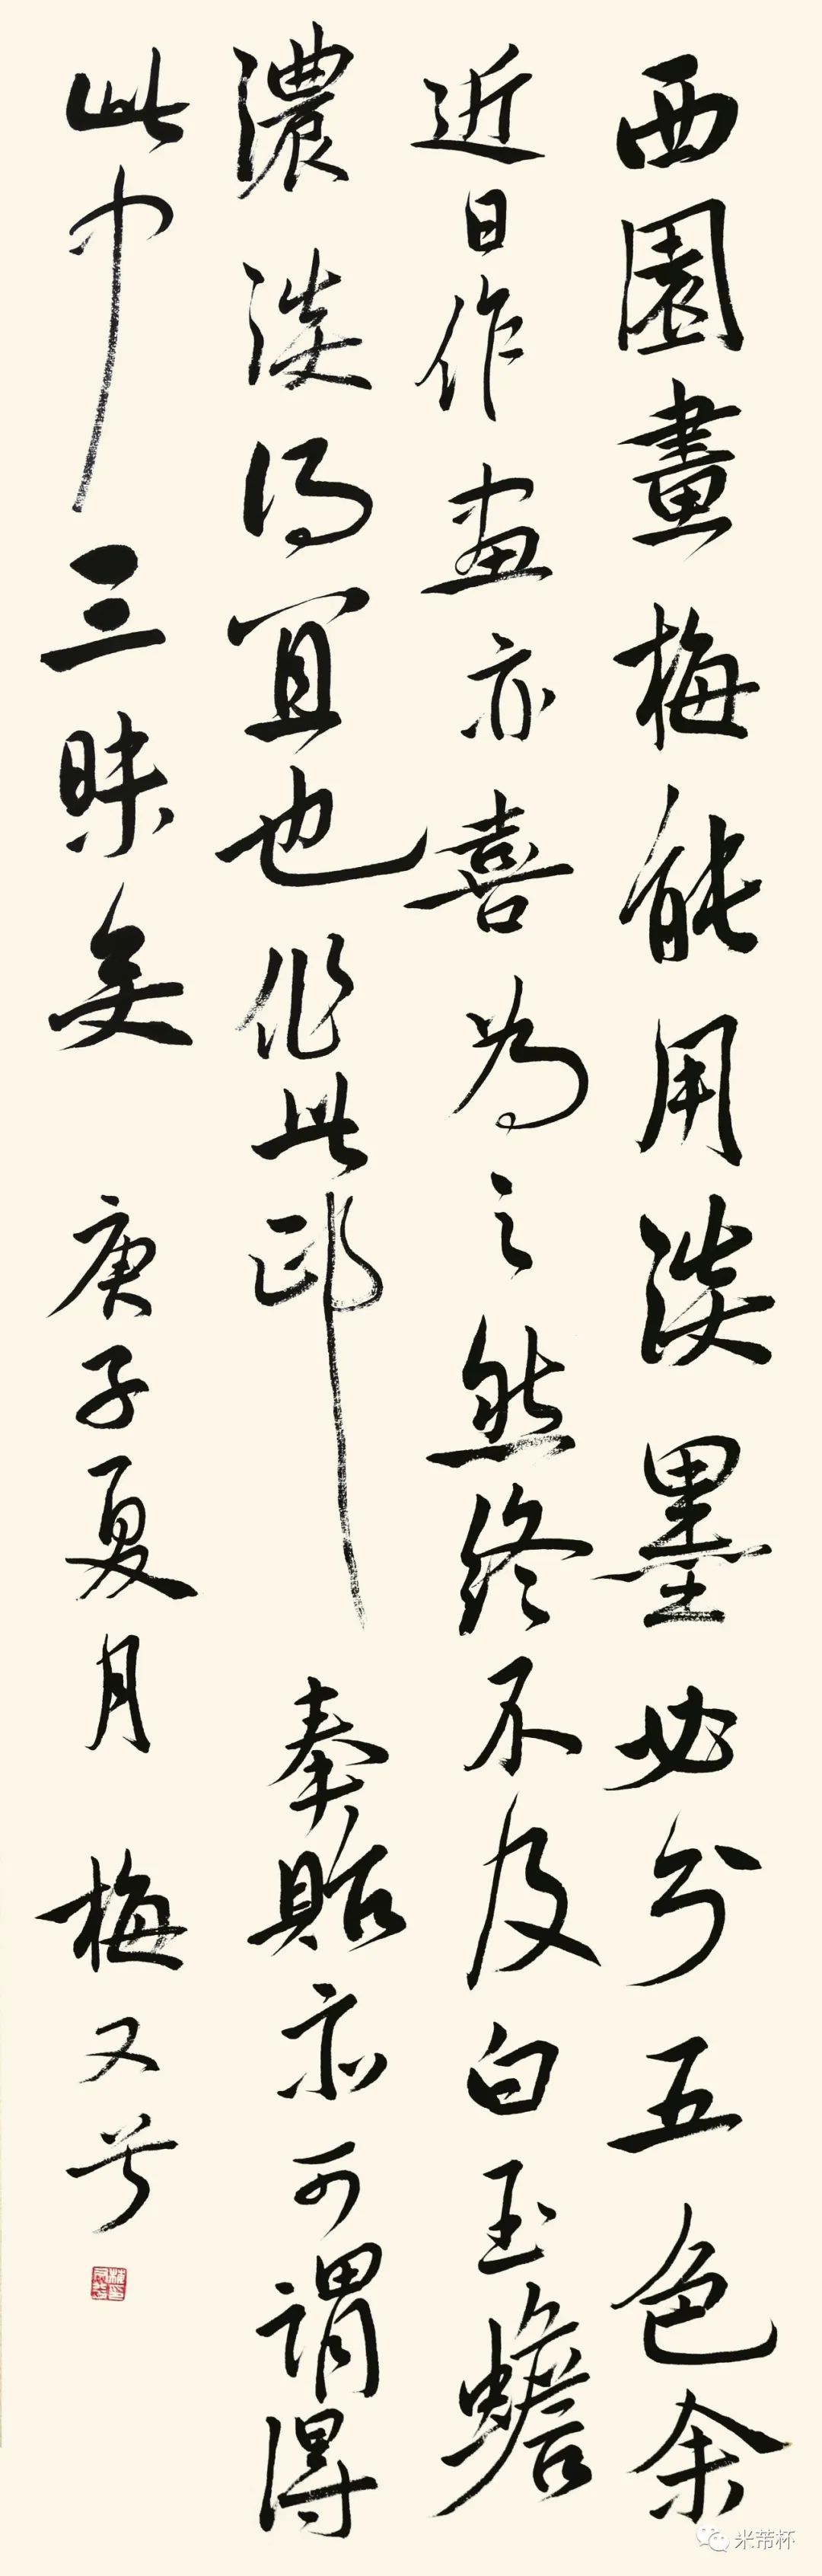 西園畫梅能用淡墨必分五色余
近日作画亦喜為之然終不及白玉蟾
濃淡得宜也作此印奉貽亦可謂得
此中三昧矣 庚子夏月 梅又
米芾杯